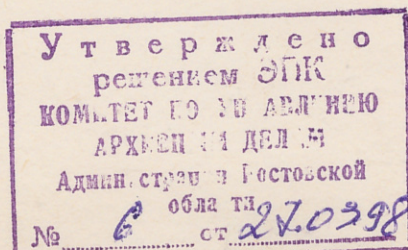 Утверждено
решением ЭПК
КОМИТЕТ ПО УПРАВЛЕНИЮ
АРХИВНЫМ ДЕЛОМ
Администрации Ростовской
области
№ 6 от 27.03.98